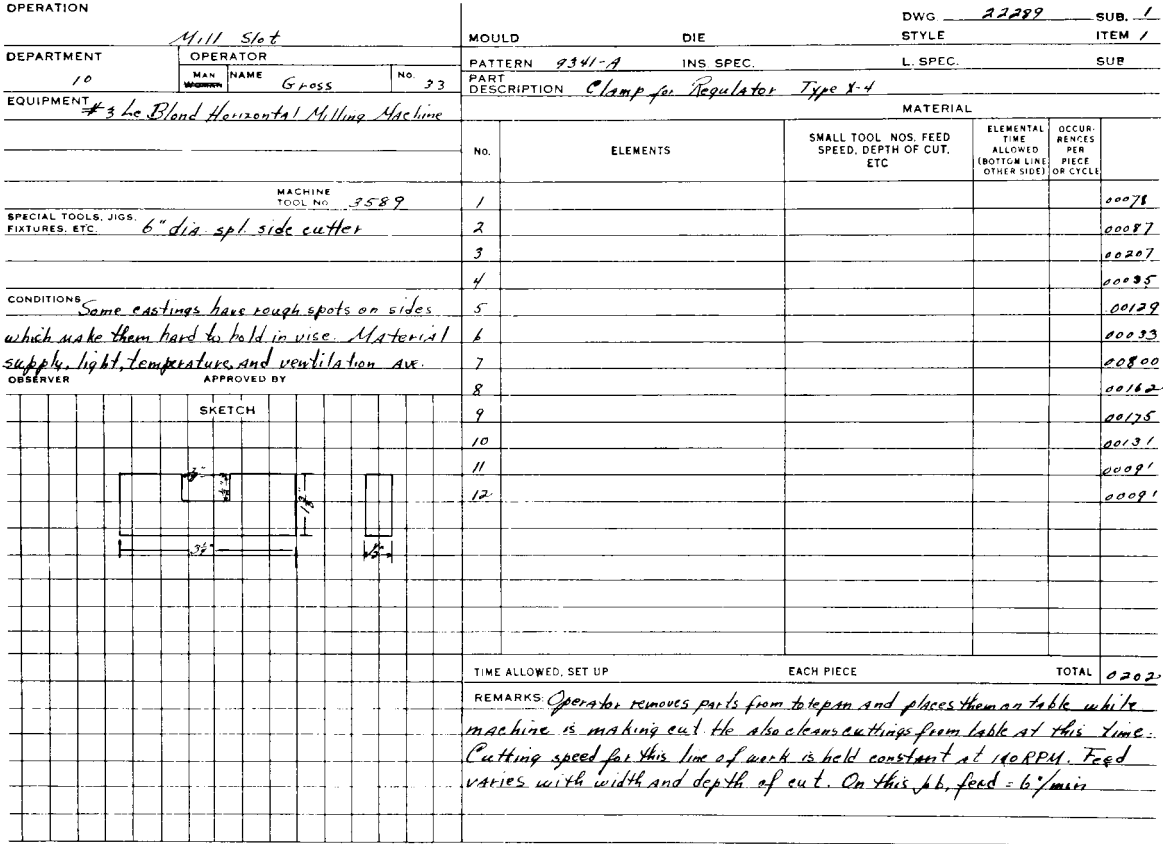 OPERATION
Mill Slot
DEPARTMENT
10
OPERATOR
MAN
WOMAN
NAME
Gross
No.
33
EQUIPMENT #3 Le Blond Horizontal Milling Machine
MACHINE
TOOL No 3589
SPECIAL TOOLS, JIGS,
FIXTURES, ETC. 6" dia. spl. side cutter
CONDITIONS Some castings have rough spots on sides
which make them hard to hold in vise. Material
supply, light, temperature, and ventilation Ave.
OBSERVER APPROVED BY
SKETCH
3¼"
½"
DWG 22289 SUB. 1
MOULD DIE STYLE ITEM 1
PATTERN 9341-A INS. SPEC. L. SPEC. SUB
PART
DESCRIPTION Clamp for Regulator Type X-4
MATERIAL
No.
ELEMENTS
SMALL TOOL NOS, FEED
SPEED, DEPTH OF CUT,
ETC
ELEMENTAL
TIME
ALLOWED
(BOTTOM LINE
OTHER SIDE)
OCCUR-
RENCES
PER
PIECE
OR CYCLE
1 00078
2 00087
3 00207
4 00035
5 00129
6 00033
7 00800
8 00162
9 00175
10 00131
11 00091
12 00091
TIME ALLOWED, SET UP EACH PIECE TOTAL 0202
REMARKS: Operator removes parts from totepan and places them on table while
machine is making cut. He also cleans cuttings from table at this time.
Cutting speed for this line of work is held constant at RPM. Feed
varies with width and depth of cut. On this job, feed = 6"/min